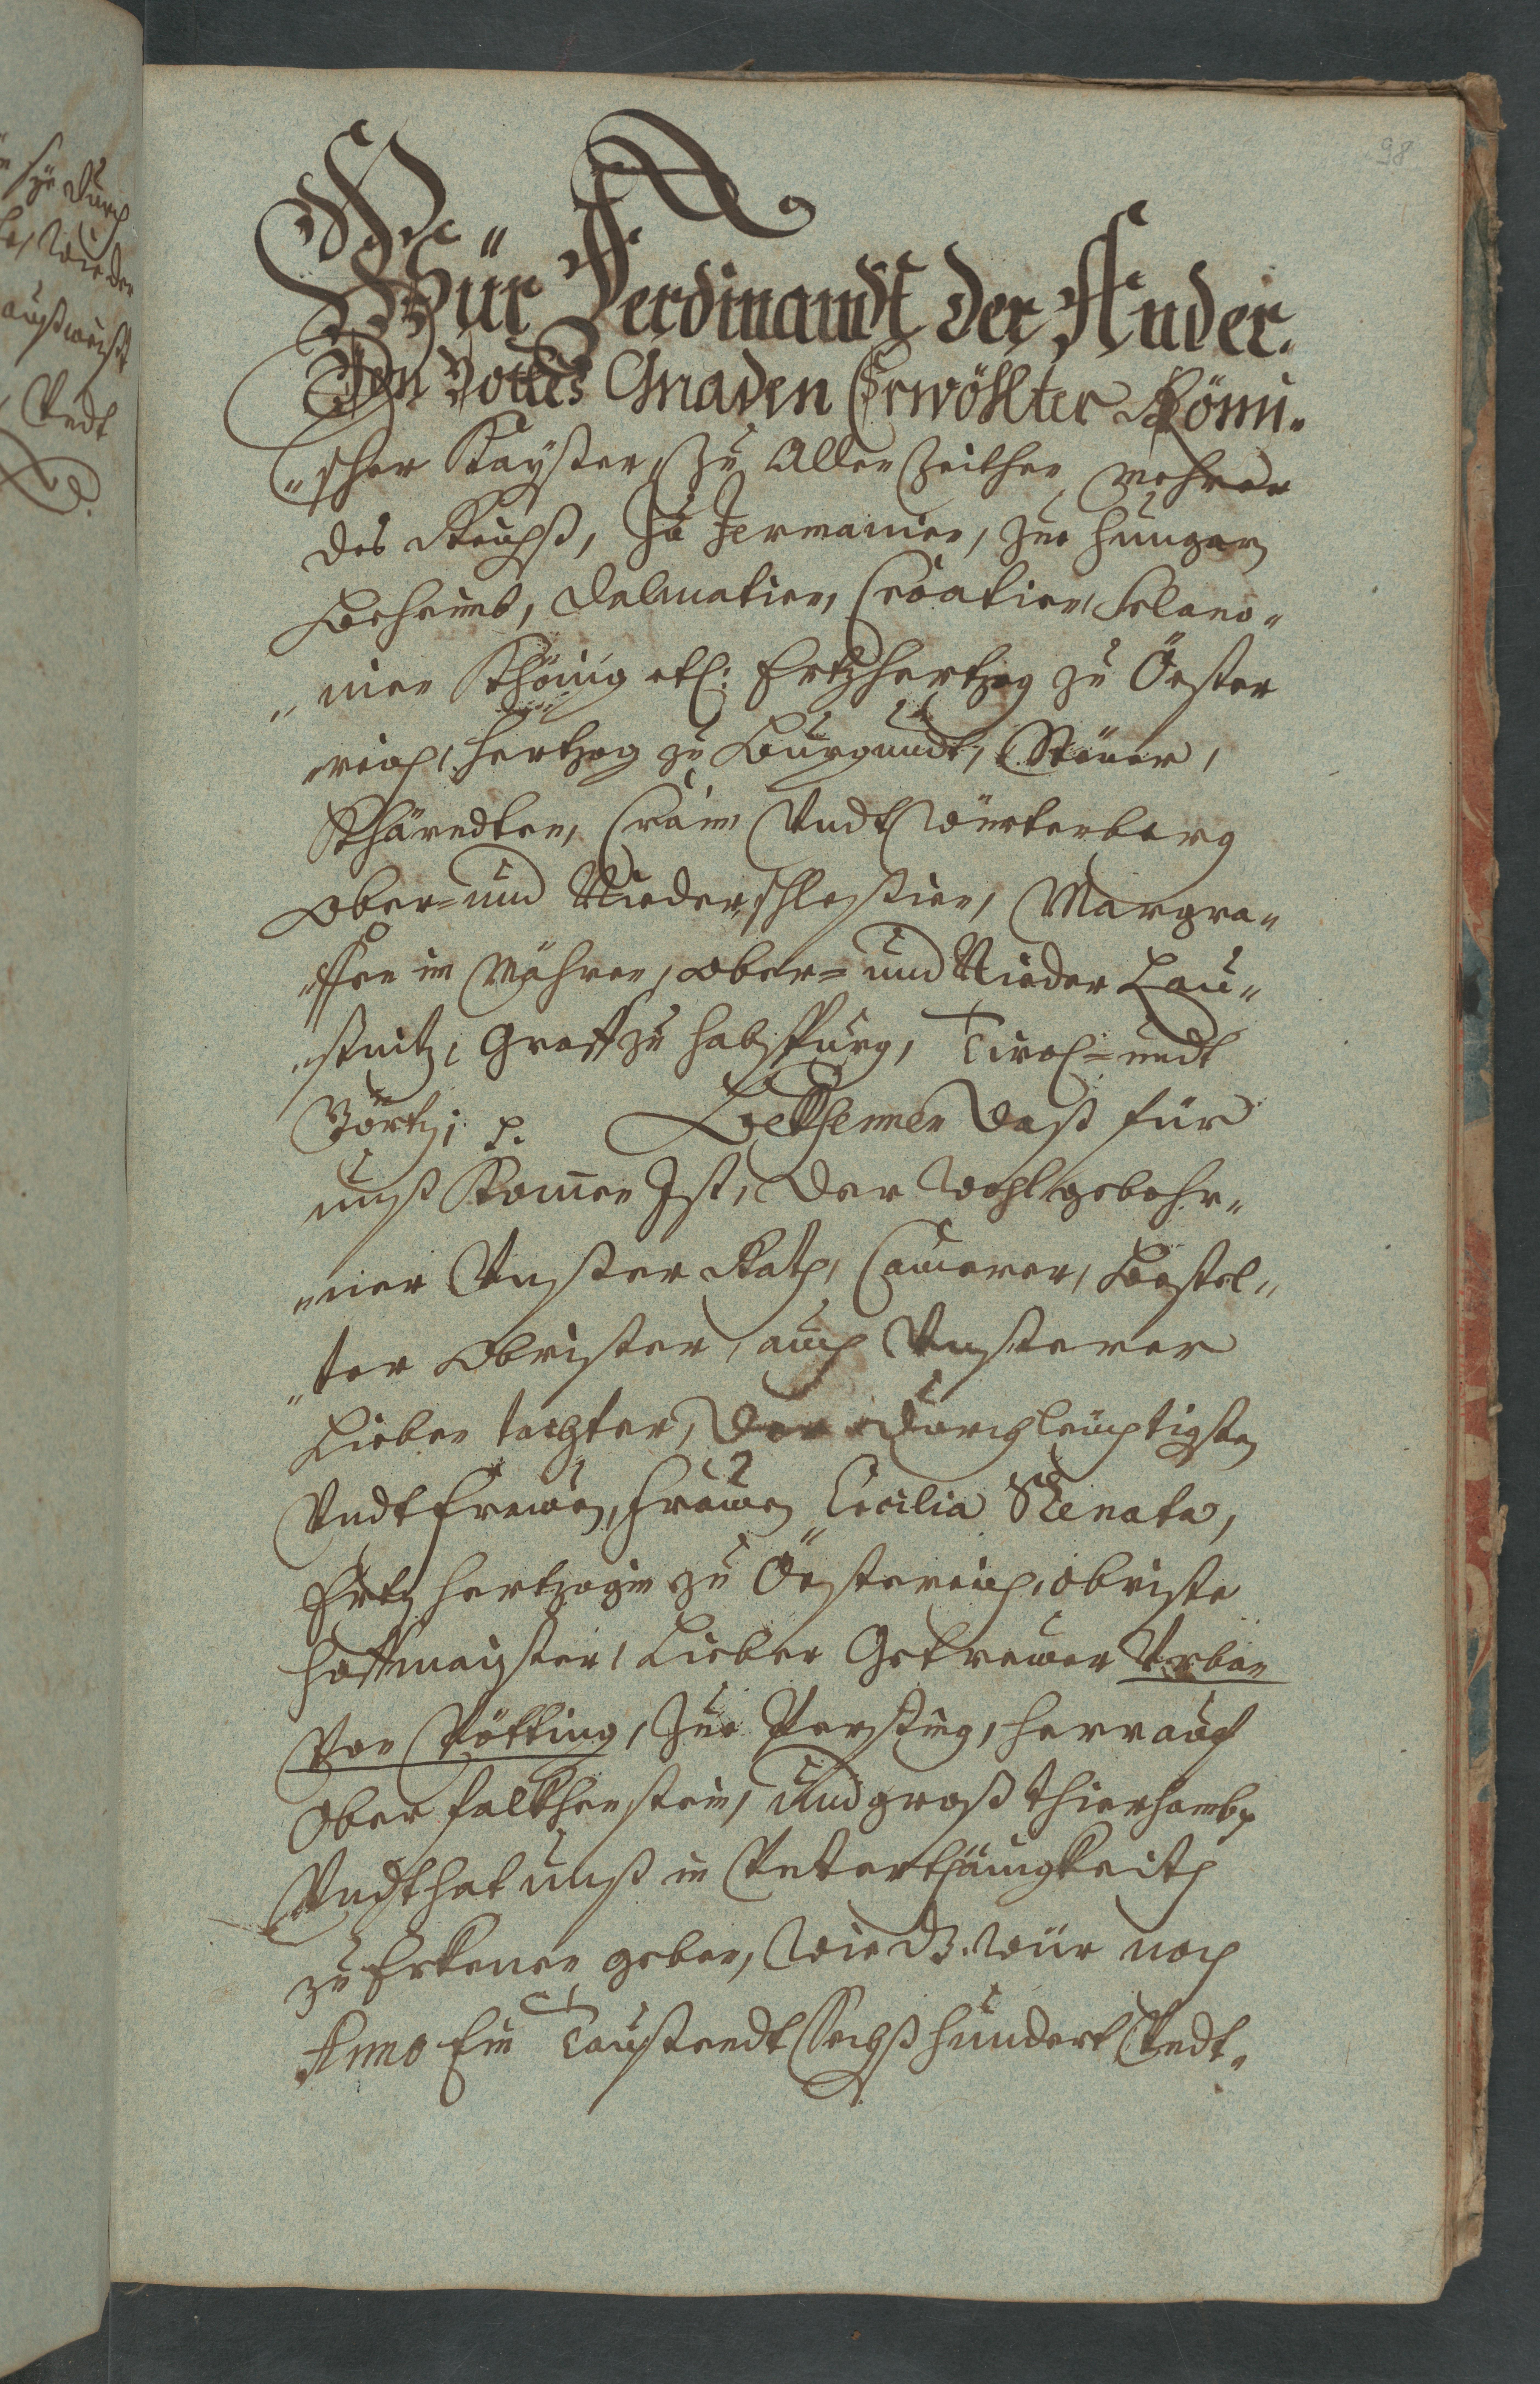 98
Wür Ferdinandt der Ander.
Von Gottes Gnaden Erwöhlter Römi„
„scher Kaÿster, zu Allen Zeithen, mehrer
des Reichß, Zu Jermanien, Zue Hungarn
Beheimb, Dalmatien, Croatien, Sclavo„
„nien Khönig etc: Ertzhertzog zu Öster
„reich, Hertzog zu Burgundt, Steuer,
Khärndten, Crain Vndt Würtenberg
Ober= und Niederschlestien, Margra„
„ffen in Mähren, Ober= und Nieder Lau„
„ßnitz, Graff zu Habsspurg, Tirol= undt
Görtz; p. Bekhennen daß für
unß Kommen Ist, der Wohl gebohr„
„ner Vnster Rath, Camerer, Bestel„
„ter Obrister, auch Vnsterer
Lieben tochter, der Durchleuchtigsten
Vndt Frawen, Frawen Cecilia Renata,
Ertz Hertzogin zu Österreich, Obriste
Hoffmaister, Lieber Getrewer Urban
Von Pötting, Zue Persting, Herr auf
Ober Falkhenstein, und groß Thierhambp
Vndt hat unß in Unterthänigkeith
zu Erkenen geben, Wie dz. Wür noch
Anno Ein Taustendt Sechß hundert Vndt„
sÿe durch
Wieder
außweist
Vndt